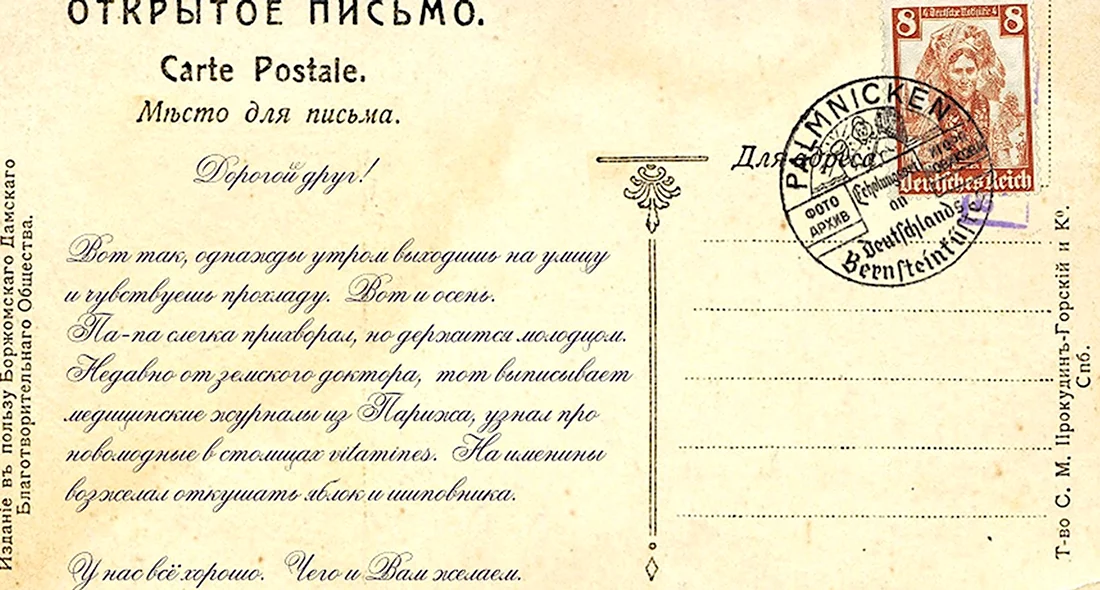 ОТКРЫТОЕ ПИСЬМО.
Carte Postale.
Мѣсто для письма.
Дорогой друг!
Вот так, однажды утром выходишь на улицу
и чувствуешь прохладу. Вот и осень.
Па-па слегка прихворал, но держится молодцом.
Недавно от земского доктора, тот выписывает
медицинские журналы из Парижа, узнал про
новомодные в столицах vitamines. На именины
возжелал откушать яблок и шиповника.
У нас всё хорошо. Чего и Вам желаем.
Изданіе въ пользу Боржомскаго Дамскаго
Благотворительнаго Общества.
Для адреса.
8 8
Deutsches Reich
PALMNICKEN
ФОТО
АРХИВ
an
Deutschlands
Т-во С. М. Прокудинъ-Горскій и Ко.
Спб.